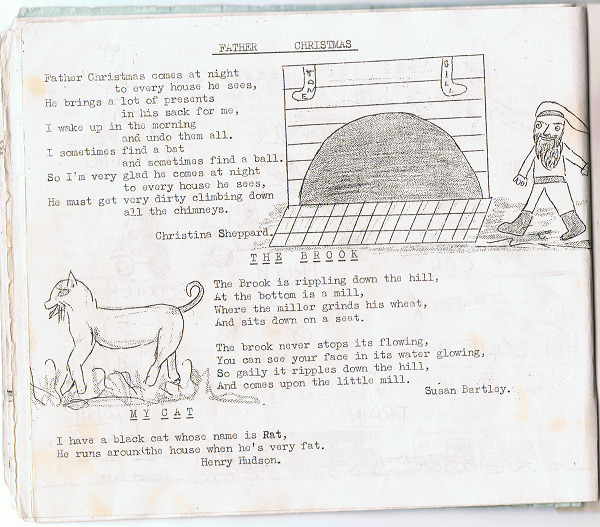 FATHER CHRISTMAS
Father Christmas comes at night
to every house he sees,
He brings a lot of presents
in his sack for me,
I wake up in the morning
and undo them all.
I sometimes find a bat
and sometimes find a ball.
So I'm very glad he comes at night
to every house he sees,
He must get very dirty climbing down
all the chimneys.
Christina Sheppard.
JANE
GILL
THE BROOK
The Brook is rippling down the hill,
At the bottom is a mill,
Where the miller grinds his wheat,
And sits down on a seat.
The brook never stops its flowing,
You can see your face in its water glowing,
So gaily it ripples down the hill,
And comes upon the little mill.
Susan Bartley.
MY CAT
I have a black cat whose name is Rat,
He runs around the house when he's very fat.
Henry Hudson.